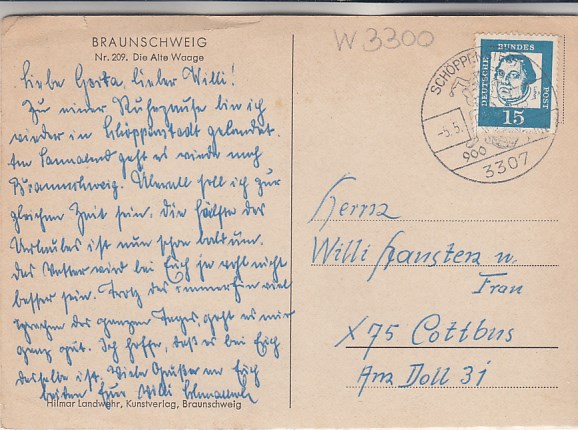 BRAUNSCHWEIG
Nr. 209. Die Alte Waage
Liebe Gerta, lieber Willi!
Zu einer Ruhepause bin ich
wieder in Schöppenstedt gelandet.
Am Sonnabend geht es wieder nach
Braunschweig. Überall soll ich zur
gleichen Zeit sein. Die Hälfte des
Urlaubes ist nun schon bald um.
Das Wetter wird bei Euch ja wohl nicht
besser sein. Trotz des immer viel
sprechen des ganzen Tages, geht es mir
ganz gut. Ich hoffe, daß es bei Euch
dasselbe ist. Viele Grüße an Euch
beiden Eure Willi
Hilmar Landwehr, Kunstverlag, Braunschweig
W 3300
DEUTSCHE BUNDES POST
15
SCHÖPPENSTE
-5.5.
900
3307
Herrn
Willi Hansten u.
Frau
X 75 Cottbus
Am Doll 31